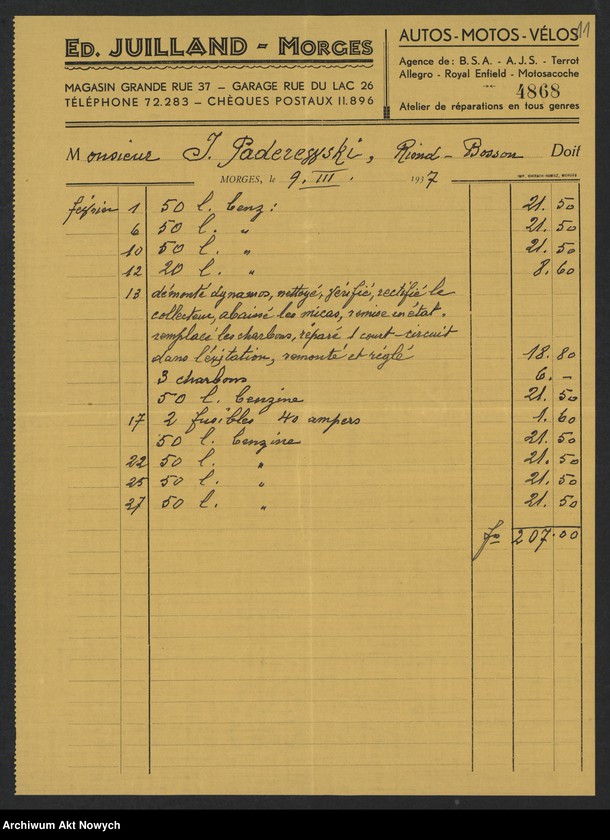 ED. JUILLAND - MORGES
MAGASIN GRANDE RUE 37 – GARAGE RUE DU LAC 26
TÉLÉPHONE 72.283 – CHÈQUES POSTAUX II.896
AUTOS - MOTOS - VÉLOS
11
Agence de : B. S. A. - A. J. S. - Terrot
Allegro - Royal Enfield - Motosacoche
4868
Atelier de réparations en tous genres
Monsieur J. Paderewski, Riond-Bosson Doit
MORGES, le 9. III. 1937
février 1 50 l. benz: 21.50
6 50 l. " 21.50
10 50 l. " 21.50
12 20 l. " 8.60
13 démonté dynamos, nettoyé, vérifié, rectifié le
collecteur, abaissé les micas, remise en état,
remplacé les charbons, réparé 1 court-circuit
dans l'exitation, remonté et réglé 18.80
3 charbons 6.–
50 l. benzine 21.50
17 2 fusibles 40 ampers 1.60
50 l. benzine 21.50
22 50 l. " 21.50
25 50 l. " 21.50
27 50 l. " 21.50
frs 207.00
Archiwum Akt Nowych